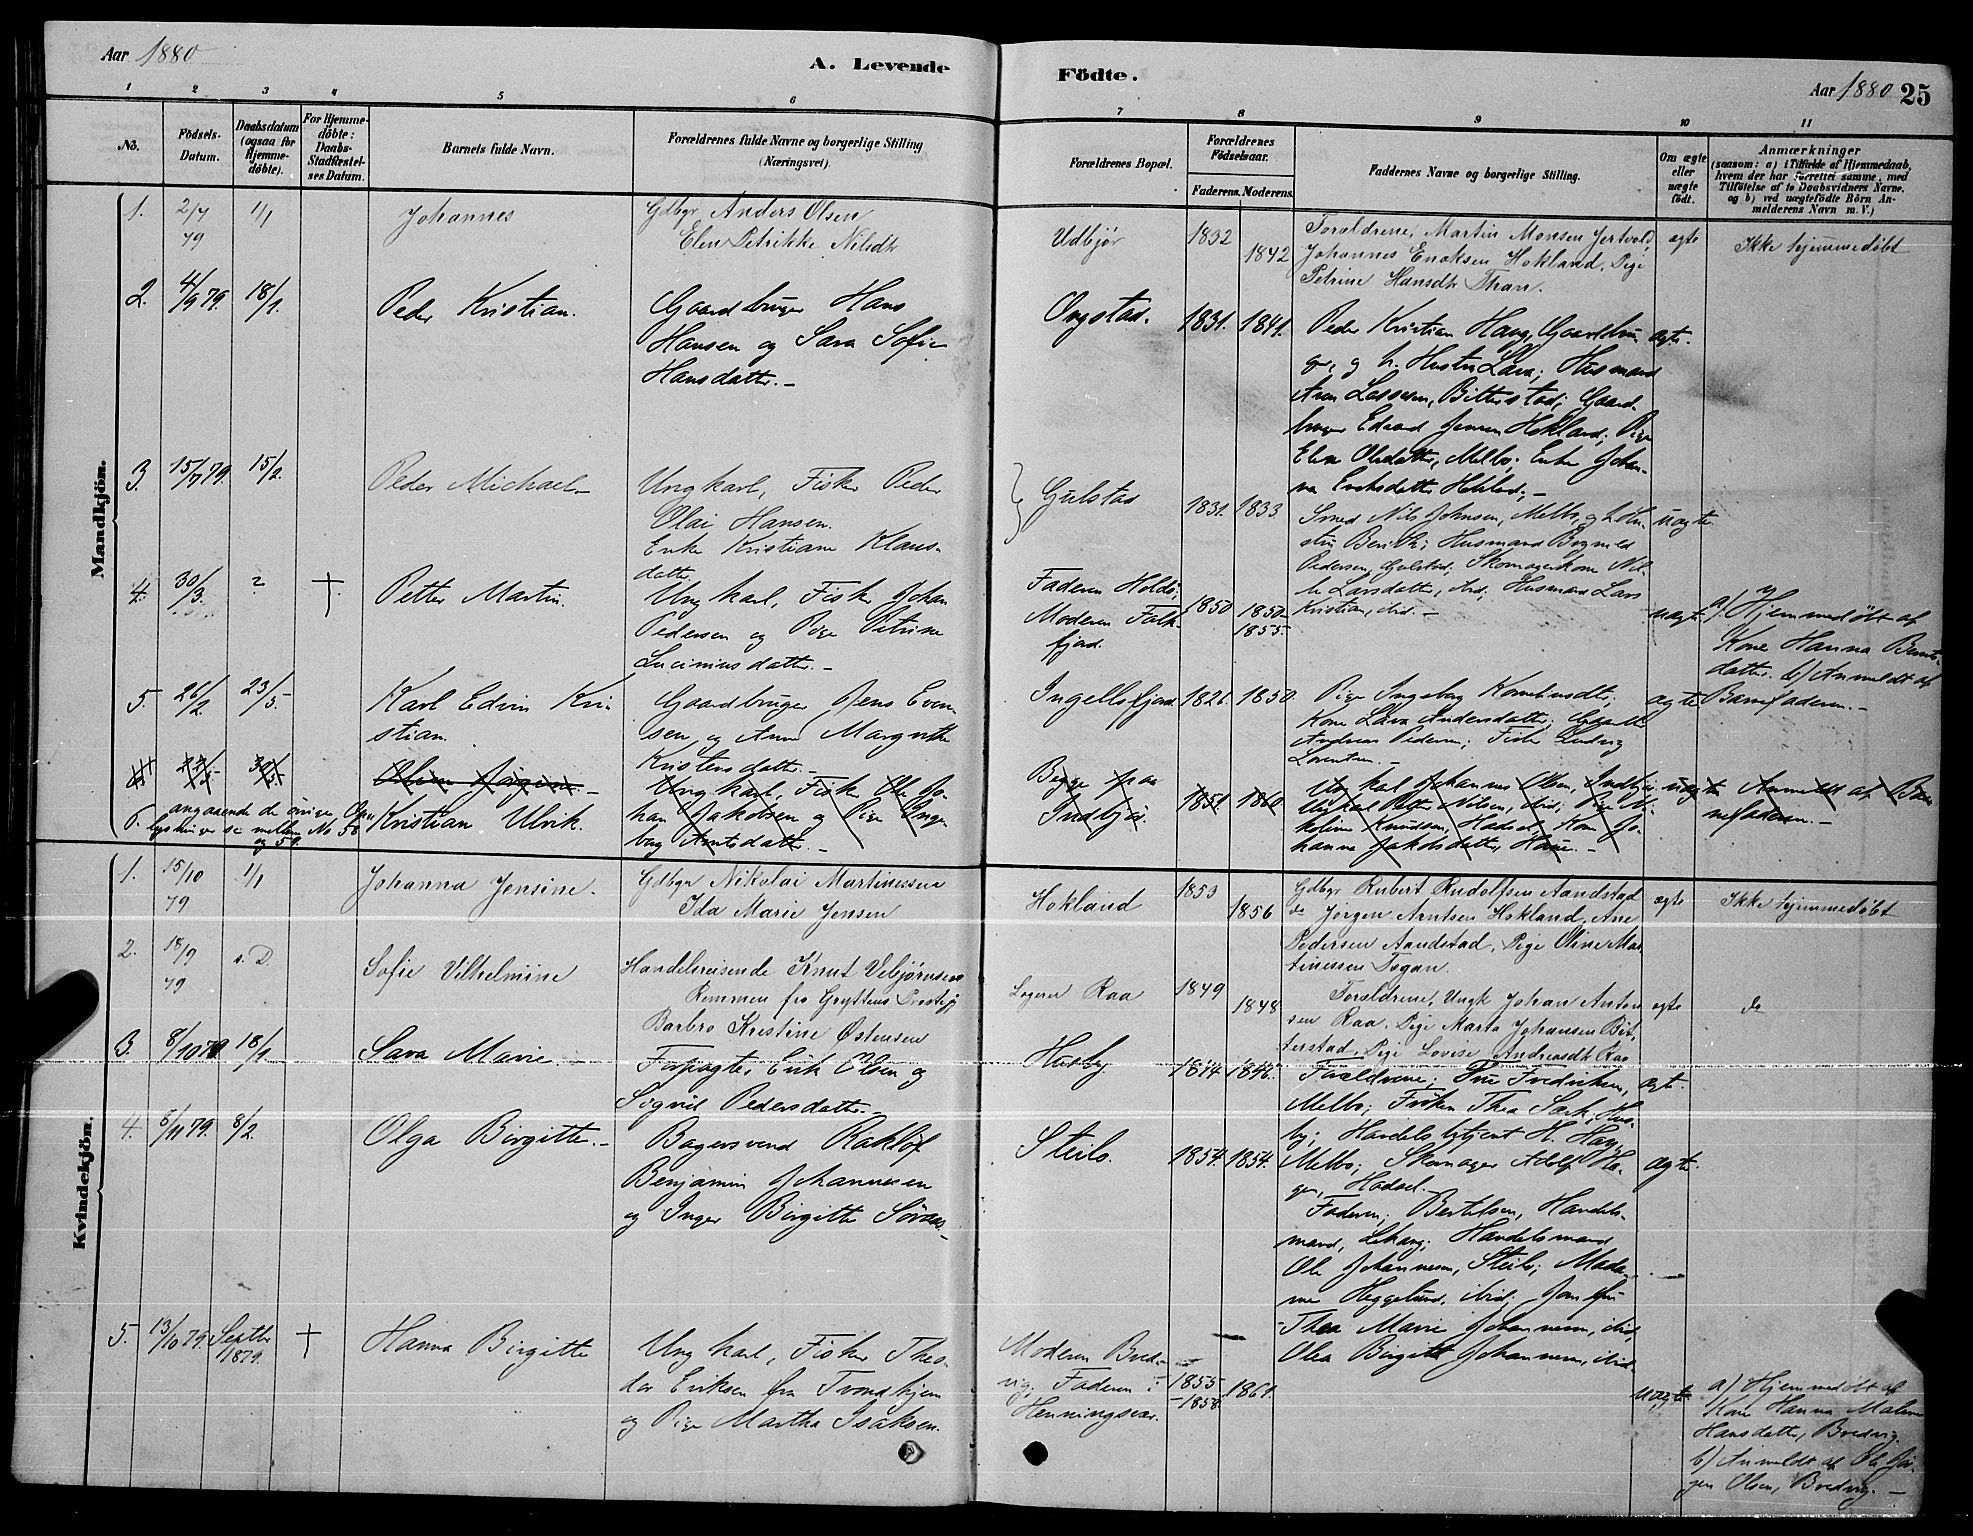 Aar 1880
A. Levende
Födte.
Aar 1880 25
1 2 3 4 5 6
7 8 9 10 11
No.
Födsels-
Datum.
Daabsdatum
(ogsaa for
Hjemme-
döbte).
For Hjemme-
döbte:
Daabs-
Stadfæstel-
ses Datum.
Barnets fulde Navn.
Forældrenes fulde Navne og borgerlige Stilling
(Næringsvei).
Forældrenes Bopæl.
Forældrenes
Födselsaar.
Faderens. Moderens.
Faddernes Navne og borgerlige Stilling.
Om ægte
eller
uægte
födt.
Anmærkninger
(saasom: a) i Tilfælde af Hjemmedaab,
hvem der har forrettet samme, med
Tilföielse af to Daabsvidners Navne,
og b) ved uægtefödte Börn An-
melderens Navn m. V.)
Mandkjön.
1. 2/7 79 1/1 Johannes
Gdbgr Anders Olsen
Elen Petrikke Nilsdtr
Udbjør 1832 1842
Foraldrene, Martin Monsen Jertvold
Johannes Enoksen Hokland, Pige
Petrine Hansdtr Thran.
ægte
Ikke hjemmedøbt
2. 4/9 79. 18/1. Peder Kristian.
Gaardbruger Hans
Hansen og Sara Sofie
Hansdatter.-
Ongstad. 1831. 1841.
Peder Kristian Haug, Gaardbru
ger, og h. Hustru Lava; Husmand
Aron Lassesen, Bitterstad; Gaard-
bruger Edvard Jensen Hokland; Pige
Elen Olsdatter, Melbo; Enke Johan-
na Enoksdatter
ægte.
3. 15/7 79. 15/2. Peder Michael-
Ungkarl, Fisker Peder
Olai Hansen.
Enke Kristiane Klaus-
datter
Gulstad 1831. 1833
Smed Nils Johnsen, Melbo, og h. Hu-
stru Berith; Husmand
Pedersen, Gulstad; Skomagerkone
Larsdatter, ibid, Husmand Lars
Kristian, ibid.-
uægte.
4. 30/3. 2 † Petter Martin.
Ungkarl, Fisker Johan
Pedersen og Pige Petrine
Luciniusdatter.-
Faderen Holdø;
Moderen Falk-
fjord.
1850 1850-
1855.
uægte
a) Hjemmedøbt af
Kone Hanna Bents-
datter. b) Anmeldt af
Barnefaderen.-
5. 26/2 23/5. Karl Edvin Kri-
stian.
Gaardbruger Jens Even-
sen og Anne Margrethe
Kristensdatter.-
Ingelsfjord. 1826. 1850.
Pige Ingeborg
Kone Lava Andersdatter;
Andreas Pedersen; Fisker Ludvig
Lorentsen.-
ægte
Olum Jørgen.-
Ungkarl, Fisker Ole Jo-
han Jakobsen og Pige Inge-
borg Arntsdatter.-
Begge paa
Indbjør.
1851 1860
Ungkarl Johannes Olsen, Indbjør
Ungkarl Petter Nilsen, ibid; Pige Ni-
koline Knudsen, Hadsel, Kone Jo-
hanne Jakobsdatter,
uægte
Anmeldt af Bar-
nefaderen.-
6. angaaende de øvrige Opu
lysninger se mellem No 58
og 59.
Kristian Ulrik.
Kvindekjön.
1. 15/10 79 1/1 Johanna Jensine.
Gdbgr Nikolai Martinessen
Ida Marie Jensen
Hokland 1853 1856
Gdbgr Rubert Rudolfsen Aandstad
do Jørgen Arntsen Hokland, Ane
Pedersen Aandstad, Pige Oline Mar
tinessen Togan.
ægte
Ikke hjemmedøbt
2. 18/9 79 s. D. Sofie Vilhelmine
Handelsreisende Knut Vebjørnsen
Remmen fra Gryttens Prestegj
Barbro Kristine Østensen
Logerer Raa 1849 1848
Foraldrene, Ungk Johan Anton
sen Raa, Pige Marta Johansen Bit
terstad, Pige Lovise Andreasdtr Raa
ægte
do
3. 8/10 79 18/1 Sara Marie.-
Forpagter Erik Olsen og
Sigrid Pedersdatter.-
Husby 1844 1846.
Forældrene; Fru Fredriksen,
Melbo; Frøken Thea Sark, Hus-
by; Handelsbetjent H. Haug,
Melbo; Skomager Adolf Ha-
ger, Hadsel.-
ægte.
4. 8/11 79. 8/2. Olga Birgitte.-
Bagersvend
Benjamin Johannesen
og Inger Birgitte Sørens-
Steilo. 1854. 1854.
Faderen; Bertelsen, Handels-
mand, Lekang; Handelsmand
Ole Johannesen, Steilo; Mada-
me Heggelund, ibid; Jomfru
Thea Marie Johannesen, ibid,
Olea Birgitte Johannesen, ibid
ægte.
5. 13/10 79. Septbr
1879. † Hanna Birgitte
Ungkarl, Fisker Theo-
dor Eriksen fra Trondhjem
og Pige Martha Isaksen.
Moderen Bred-
vig; Faderen :
Henningsvær.
1855
-1858 1861.
uægte
a) Hjemmedøbt af
Kone Hanna Malene
Hansdatter, Bredvig.
b) Anmeldt af Ole Jør-
gen Olsen, Bredvig.-